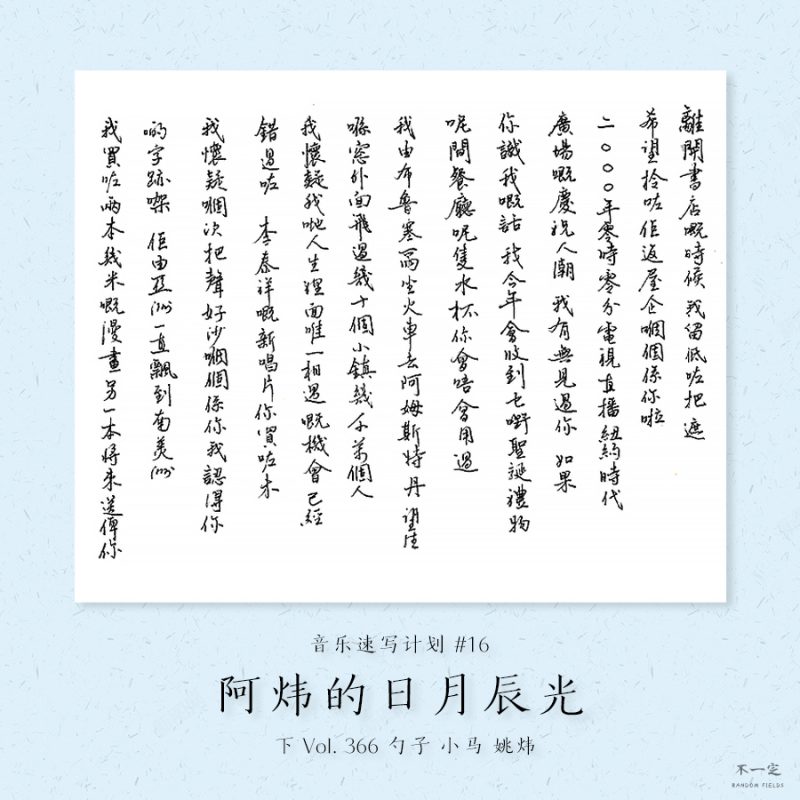 離開書店嘅時候 我留低咗把遮
希望拎咗佢返屋企嗰個係你啦
二〇〇〇年零時零分電視直播紐約時代
廣場嘅慶祝人潮 我有無見過你 如果
你識我嘅話 我今年會收到乜嘢聖誕禮物
呢間餐廳呢隻水杯你會唔會用過
我由布魯塞爾坐火車去阿姆斯特丹 望住
喺窗外面飛過幾十個小鎮幾千萬個人
我懷疑我哋人生裡面唯一相遇嘅機會已經
錯過咗 李泰祥嘅新唱片你買咗未
我懷疑嗰次把聲好沙嗰個係你我認得你
啲字跡㗎 佢由亞洲一直飄到南美洲
我買咗兩本幾米嘅漫畫另一本將來送俾你
音乐速写计划 #16
阿炜的日月辰光
下 Vol. 366 勺子 小马 姚炜
不一定
RANDOM FIELDS